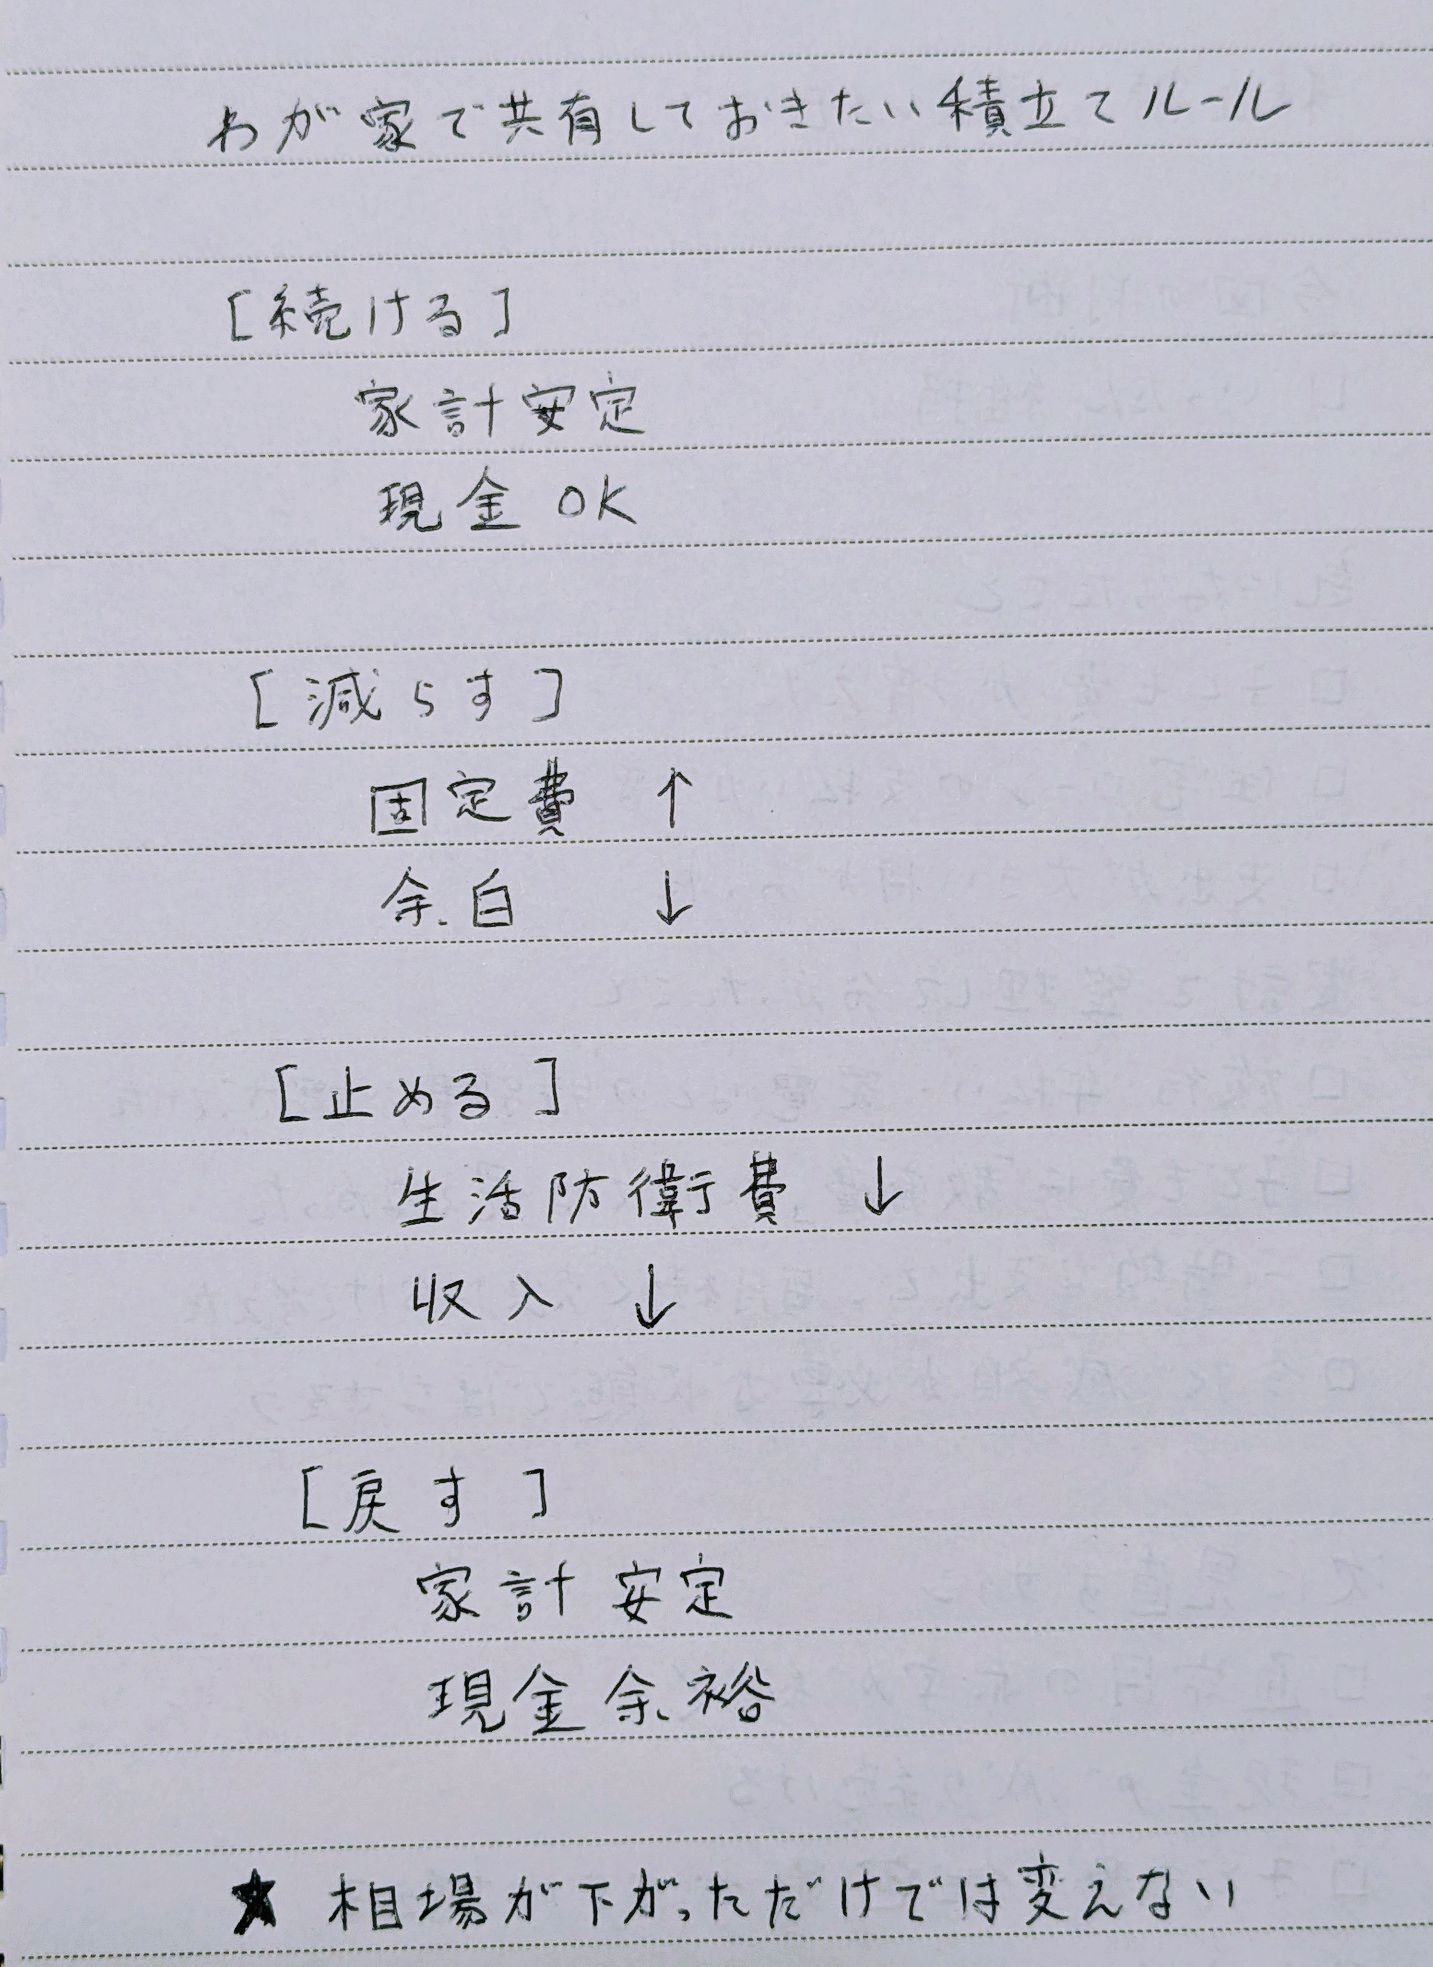 わが家で共有しておきたい積立てルール
[続ける]
家計安定
現金OK
[減らす]
固定費 ↑
余白 ↓
[止める]
生活防衛費 ↓
収入 ↓
[戻す]
家計安定
現金余裕
★ 相場が下がっただけでは変えない